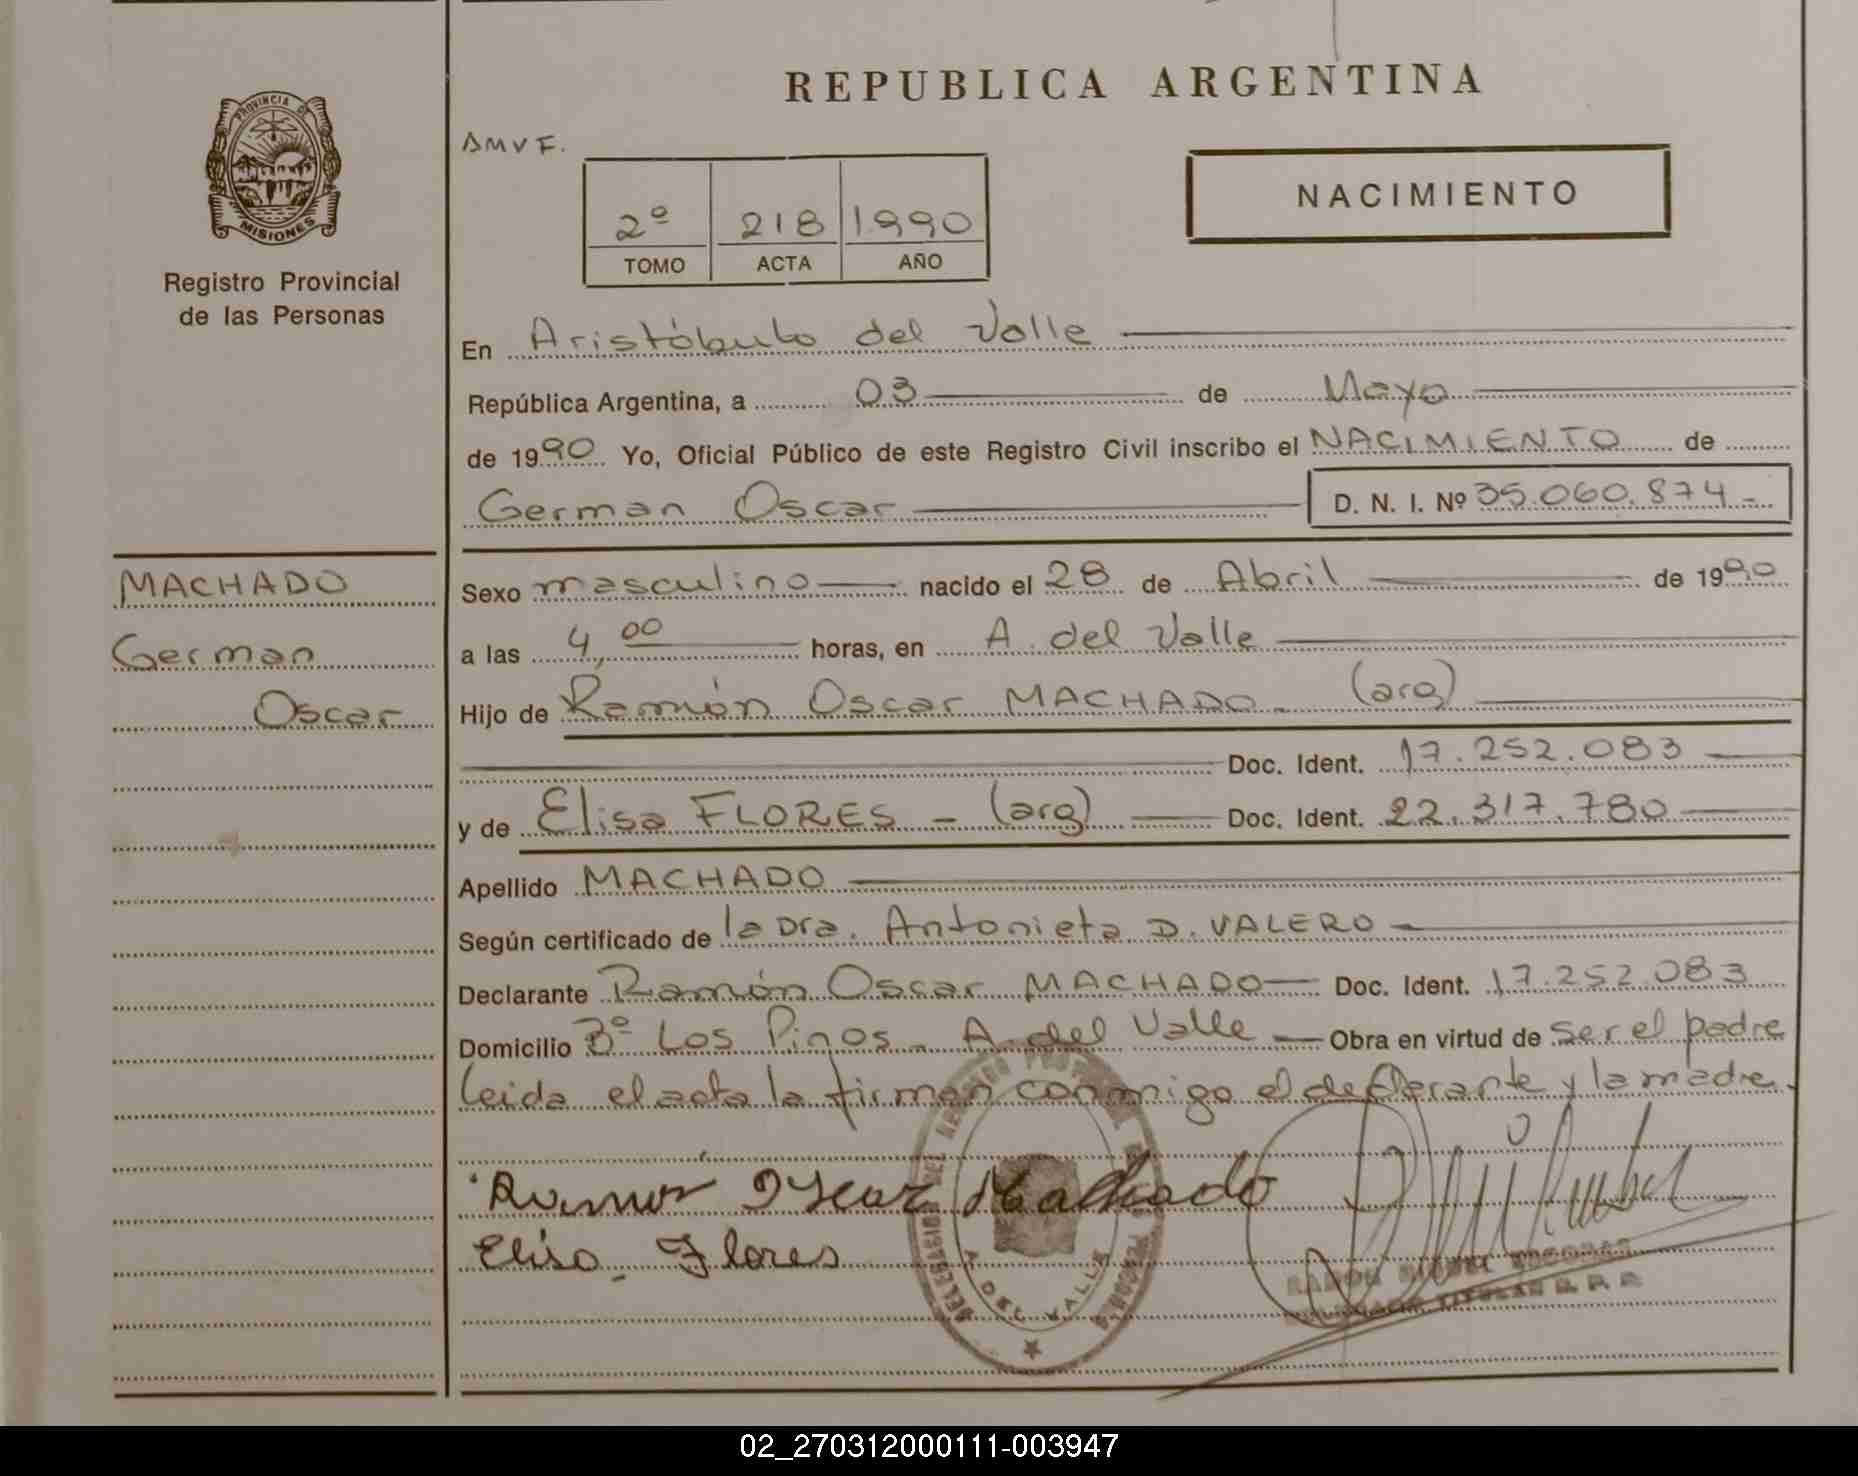 PROVINCIA DE
MISIONES
Registro Provincial
de las Personas
MACHADO
German
Oscar
REPUBLICA ARGENTINA
AMVF.
2º 218 1990
TOMO ACTA AÑO
NACIMIENTO
En Aristóbulo del Valle
República Argentina, a 03 de Mayo
de 1990 Yo, Oficial Público de este Registro Civil inscribo el NACIMIENTO de
German Oscar D. N. I. Nº 35.060.874.-
Sexo masculino nacido el 28 de Abril de 1990
a las 4,00 horas, en A. del Valle
Hijo de Ramón Oscar MACHADO. (arg)
Doc. Ident. 17.252.083
y de Elisa FLORES - (arg) Doc. Ident. 22.317.780
Apellido MACHADO
Según certificado de la Dra. Antonieta D. VALERO
Declarante Ramón Oscar MACHADO Doc. Ident. 17.252.083
Domicilio Bº Los Pinos - A. del Valle Obra en virtud de ser el padre
leida el acta la firman conmigo el declarante y la madre.
Ramon Oscar Machado
Elisa Flores
A. DEL VALLE
TITULAR R. P. P.
02_270312000111-003947